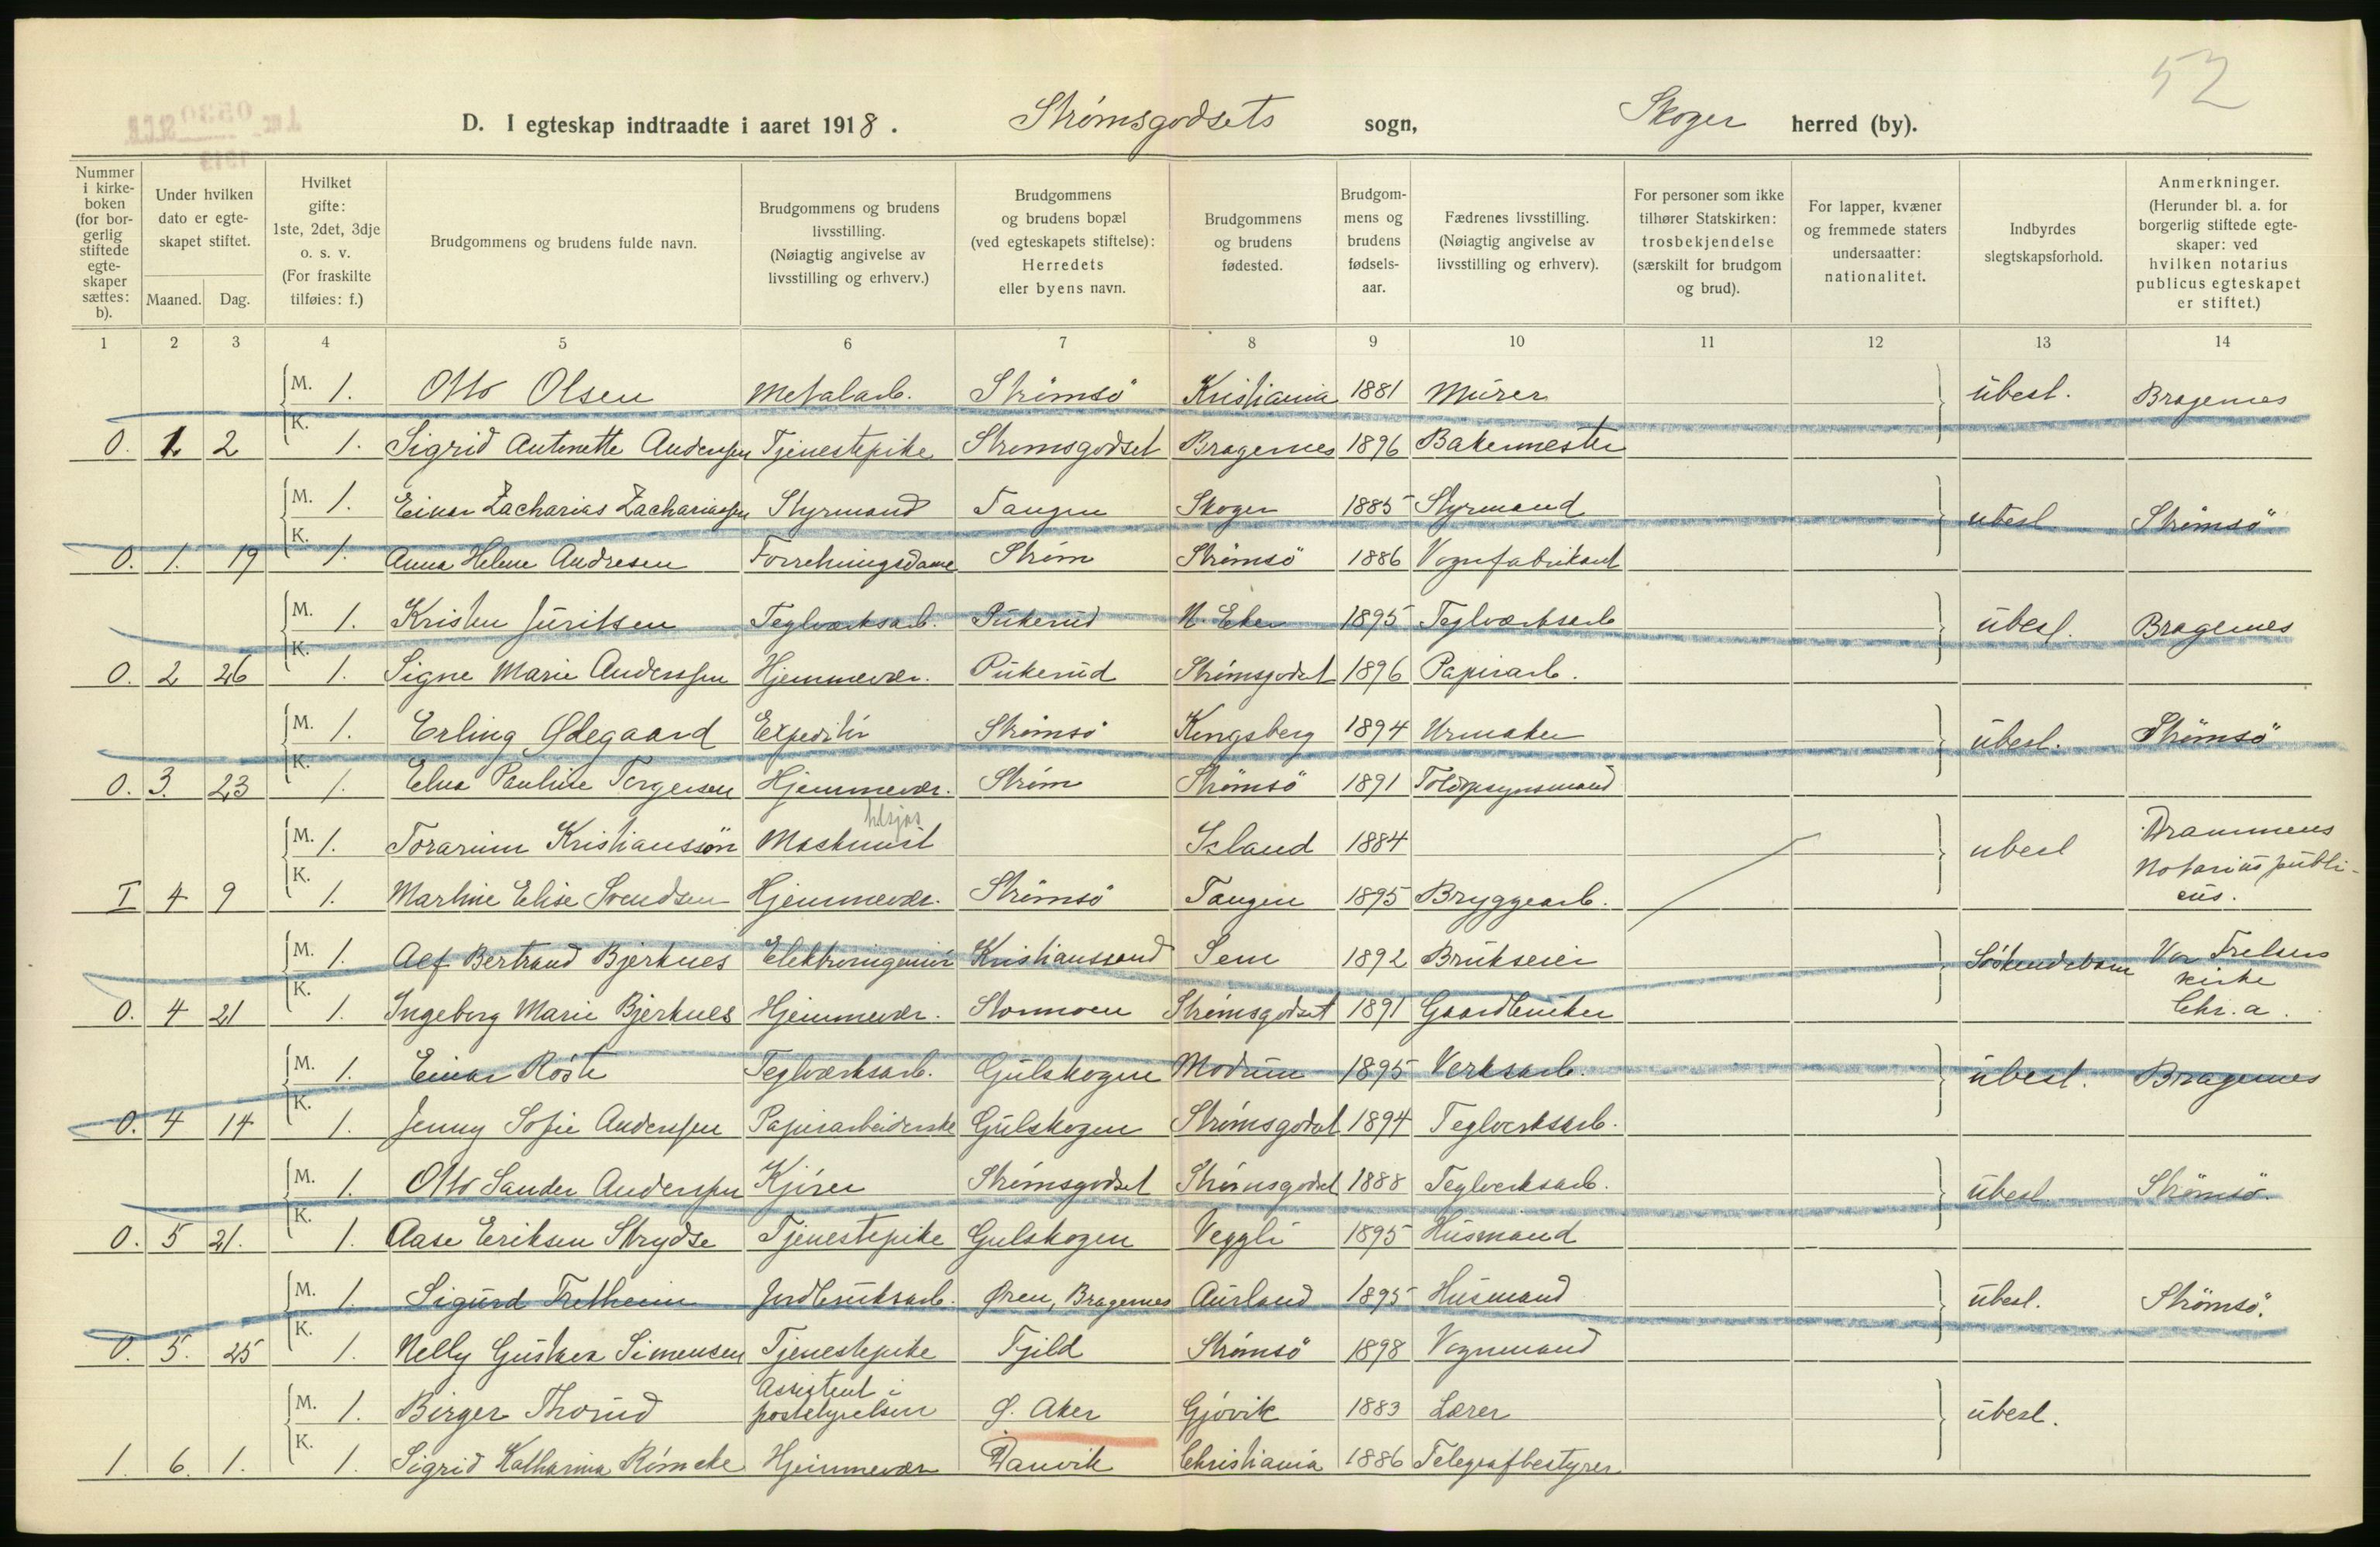 52
D. I egteskap indtraadte i aaret 1918. Strømsgodsets sogn, Skoger herred (by).
Nummer i kirkeboken (for borgerlig stiftede egteskaper sættes: b).
Under hvilken dato er egteskapet stiftet.
Maaned. Dag.
Hvilket gifte: 1ste, 2det, 3dje o. s. v. (For fraskilte tilføies: f.)
Brudgommens og brudens fulde navn.
Brudgommens og brudens livsstilling. (Nøiagtig angivelse av livsstilling og erhverv.)
Brudgommens og brudens bopæl (ved egteskapets stiftelse): Herredets eller byens navn.
Brudgommens og brudens fødested.
Brudgommens og brudens fødselsaar.
Fædrenes livsstilling. (Nøiagtig angivelse av livsstilling og erhverv).
For personer som ikke tilhører Statskirken: trosbekjendelse (særskilt for brudgom og brud).
For lapper, kvæner og fremmede staters undersaatter: nationalitet.
Indbyrdes slegtskapsforhold.
Anmerkninger. (Herunder bl. a. for borgerlig stiftede egteskaper: ved hvilken notarius publicus egteskapet er stiftet.)
1 2 3 4 5 6 7 8 9 10 11 12 13 14
M. 1. Otto Olsen Metalarb. Strømsö Kristiania 1881 Murer übesl. Bragernes
O. 1. 2 K. 1. Sigrid Antonette Anderssen Tjenestepike Strømsgodset Bragernes 1896 Bakermester
M. 1. Einar Zacharias Zachariassen Styrmand Tangen Skoger 1885 Styrmand ubesl Strömsö
O. 1. 19 K. 1. Anna Helene Andresen Forretningsdame Strøm Strömsö 1886 Vognfabrikant
M. 1. Kristen Juritsen Teglværksarb. Pukerud N. Eker 1895 Teglværksarb übesl. Bragernes
O. 2 26 K. 1. Signe Marie Anderssen Hjemmevær. Pukerud Strømsgodset 1896 Papirarb.
M. 1. Erling Ødegaard Expeditör Strømsö Kongsberg 1894 Urmaker übesl. Strömsö
O. 3. 23 K. 1. Elna Pauline Torgersen Hjemmevær. Strøm Strömsö 1891 Toldopsynsmand
M. 1. Torarinn Kristianssön Maskinist Island 1884 ubesl Drammens
Notarius publi-
cus.
I 4 9 K. 1. Martine Elise Svendsen Hjemmevær. Strømsö Tangen 1895 Bryggearb.
M. 1. Alf Bertrand Bjerknes Elektroingeniör Kristianssand Sem 1892 Brukseier Söskendebarn Vor Frelsers
kirke
Chr.a.
O. 4 21 K. 1. Ingeborg Marie Bjerknes Hjemmevær. Stormoen Strømsgodset 1891 Gaardbruker
M. 1. Einar Röste Teglværksarb. Gulskogen Modum 1895 Verksarb. übesl. Bragernes
O. 4 14 K. 1. Jenny Sofie Anderssen Papirarbeiderske Gulskogen Strømsgodset 1894 Teglverksarb.
M. 1. Otto Sander Anderssen Kjörer Strømsgodset Strømsgodset 1888 Teglverksarb. übesl. Strömsö.
O. 5 21. K. 1. Aase Eriksen Strydse Tjenestepike Gulskogen Veggli 1895 Husmand
M. 1. Sigurd Fretheim Jordbruksarb. Øren, Bragernes Aurland 1895 Husmand übesl. Strömsö.
O. 5. 25 K. 1. Nelly Gustava Simensen Tjenestepike Fjild Strømsö 1898 Vognmand
M. 1. Birger Thorud Assistent i
poststyrelsen Ø. Aker Gjövik 1883 Lærer übesl.
1. 6. 1. K. 1. Sigrid Katharina Römcke Hjemmevær Danvik Christiania 1886 Telegrafbestyrer